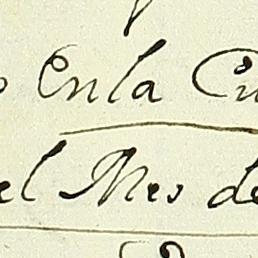 En la Ciu
el Mes de